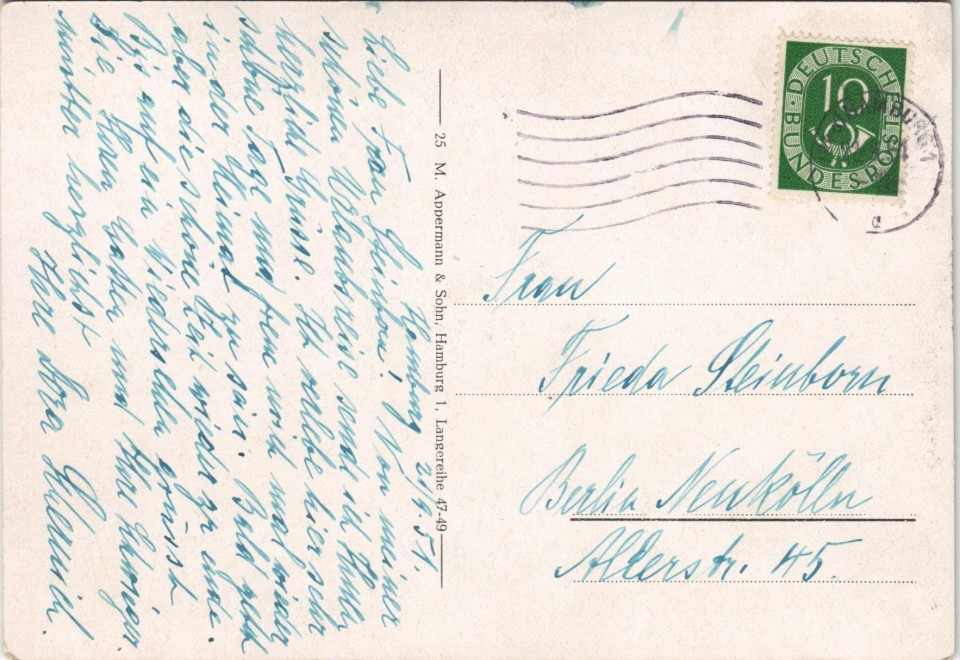 Hamburg 21/9.51.
Liebe Frau Steinborn! Von meiner
schönen Urlaubsreise send ich Ihnen
herzliche Grüsse. Ich verlebe hier sehr
schöne Tage und freue mich mal wieder
in der Heimat zu sein. Bald geht
aber die schöne Zeit wieder zu Ende.
Bis auf ein Wiedersehen grüsst
Sie, Ihren Gatten und Ihre
munter herzlichst
Ihre
25 M. Appermann & Sohn, Hamburg 1, Langereihe 47-49
DEUTSCHE BUNDESPOST
10
HAMBURG 1
Frau
Frieda Steinborn
Berlin Neukölln
Allerstr. 45.